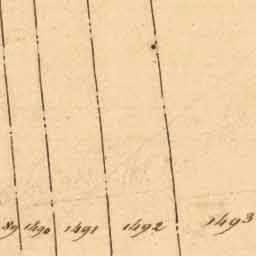 89 1490 1491 1492 1493